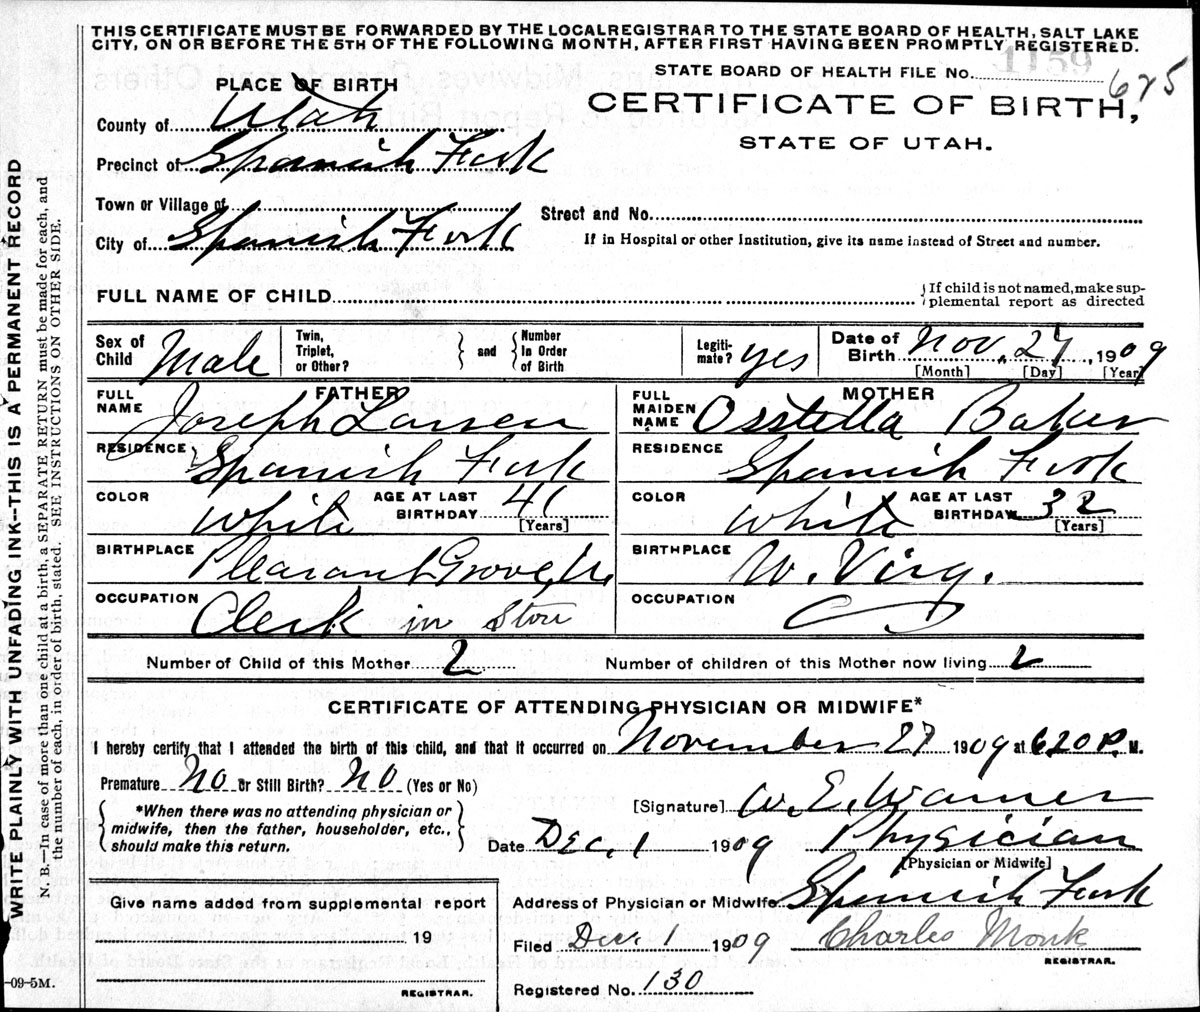 THIS CERTIFICATE MUST BE FORWARDED BY THE LOCAL REGISTRAR TO THE STATE BOARD OF HEALTH, SALT LAKE
CITY, ON OR BEFORE THE 5TH OF THE FOLLOWING MONTH, AFTER FIRST HAVING BEEN PROMPTLY REGISTERED.
1159
STATE BOARD OF HEALTH FILE No. 675
PLACE OF BIRTH
CERTIFICATE OF BIRTH,
STATE OF UTAH.
County of Utah
Precinct of Spanish Fork
Town or Village of
Street and No.
City of Spanish Fork
If in Hospital or other Institution, give its name instead of Street and number.
FULL NAME OF CHILD
{If child is not named, make sup-
plemental report as directed
Sex of Child Male
Twin, Triplet, or Other? } and { Number In Order of Birth
Legiti-mate? yes
Date of Birth Nov. 27, 1909
[Month] [Day] [Year]
FATHER
FULL NAME Joseph Larsen
RESIDENCE Spanish Fork
COLOR White
AGE AT LAST BIRTHDAY 41 [Years]
BIRTHPLACE Pleasant Grove, U.
OCCUPATION Clerk in Store
MOTHER
FULL MAIDEN NAME Osstella Baker
RESIDENCE Spanish Fork
COLOR White
AGE AT LAST BIRTHDAY 32 [Years]
BIRTHPLACE W. Virg.
OCCUPATION
Number of Child of this Mother 2
Number of children of this Mother now living 2
CERTIFICATE OF ATTENDING PHYSICIAN OR MIDWIFE*
I hereby certify that I attended the birth of this child, and that it occurred on November 27 1909 at 6.20 P. M.
Premature No or Still Birth? No (Yes or No)
*When there was no attending physician or
midwife, then the father, householder, etc.,
should make this return.
[Signature] W. E. Warner
Date Dec, 1 1909 Physician
[Physician or Midwife]
Address of Physician or Midwife Spanish Fork
Filed Dec. 1 1909 Charles Monk
REGISTRAR.
Registered No. 130
Give name added from supplemental report
19
REGISTRAR.
-09-5M.
WRITE PLAINLY WITH UNFADING INK--THIS IS A PERMANENT RECORD
N. B.—In case of more than one child at a birth, a SEPARATE RETURN must be made for each, and
the number of each, in order of birth, stated. SEE INSTRUCTIONS ON OTHER SIDE.